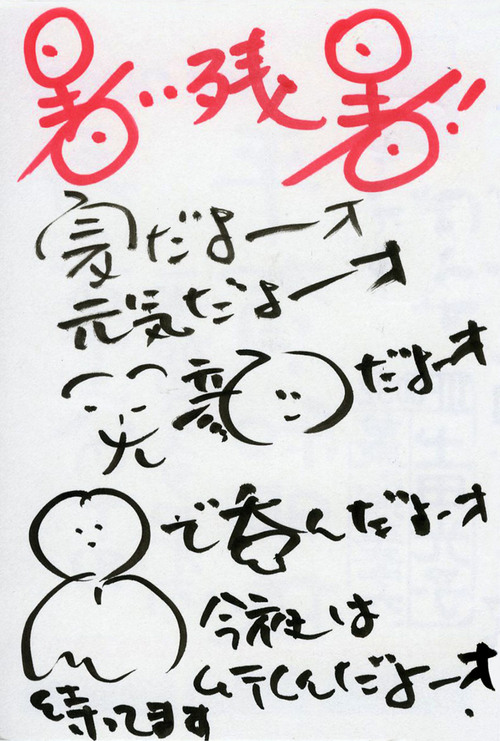 暑い残暑!
夏だよーオ
元気だよーオ
笑顔だよーオ
で呑んだよーオ
んだよーオ
待ってます